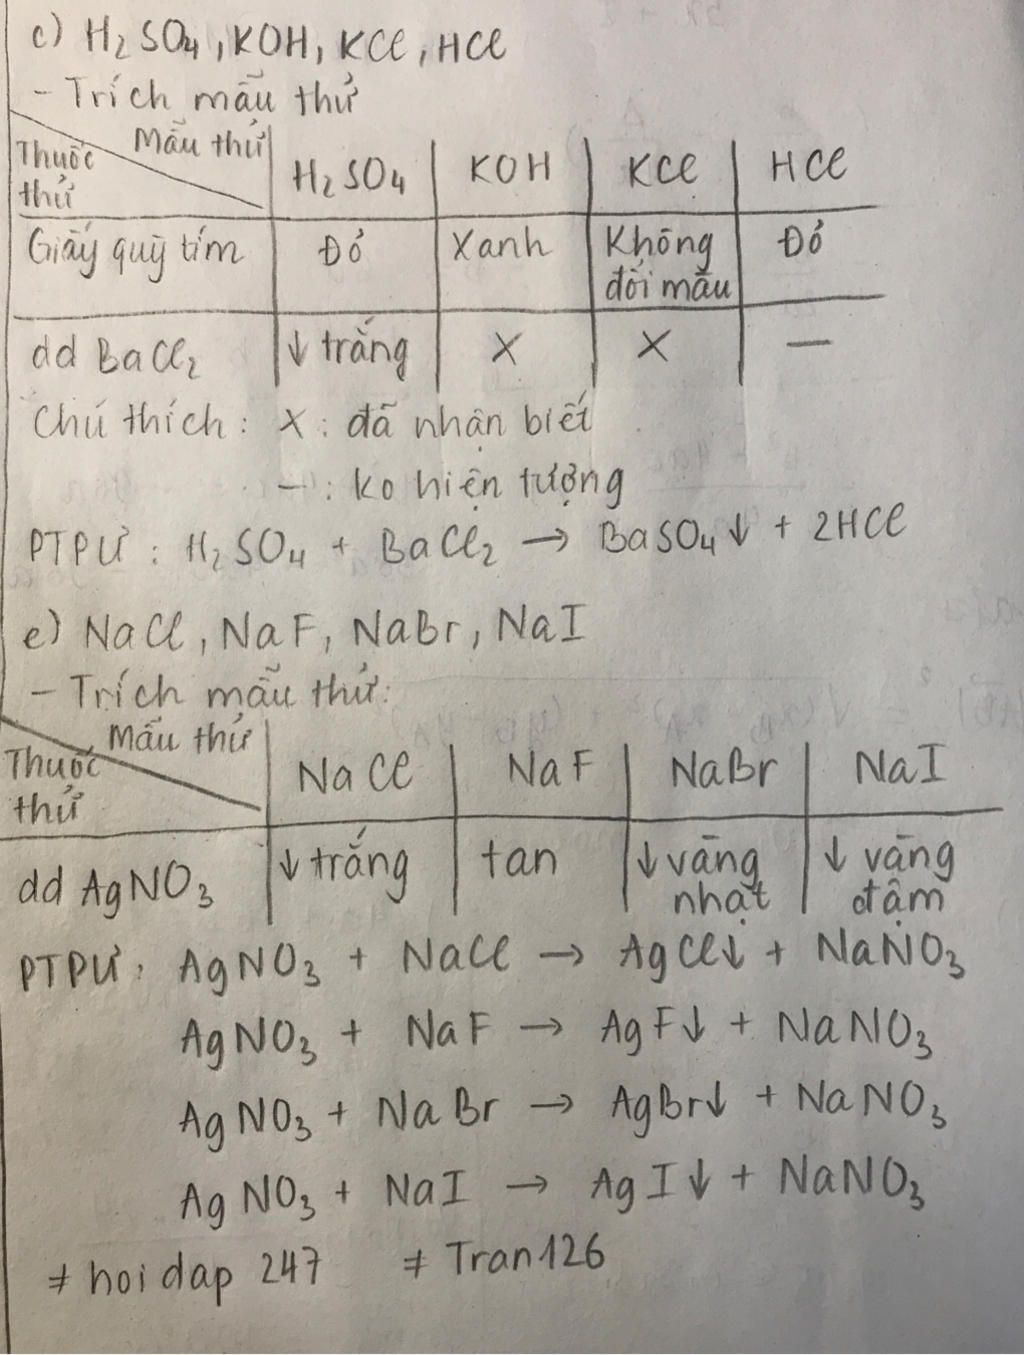 c) H₂SO₄, KOH, KCl, HCl
- Trích mẫu thử
Mẫu thử
Thuốc thử
H₂SO₄ | KOH | KCl | HCl
Giấy quỳ tím | Đỏ | Xanh | Không đổi màu | Đỏ
dd BaCl₂ | ↓ trắng | X | X | —
Chú thích: X: đã nhận biết
—: ko hiện tượng
PTPƯ: H₂SO₄ + BaCl₂ → BaSO₄↓ + 2HCl
e) NaCl, NaF, NaBr, NaI
- Trích mẫu thử:
Mẫu thử
Thuốc thử
NaCl | NaF | NaBr | NaI
dd AgNO₃ | ↓ trắng | tan | ↓ vàng nhạt | ↓ vàng đậm
PTPƯ: AgNO₃ + NaCl → AgCl↓ + NaNO₃
AgNO₃ + NaF → AgF↓ + NaNO₃
AgNO₃ + NaBr → AgBr↓ + NaNO₃
AgNO₃ + NaI → AgI↓ + NaNO₃
# hoidap 247 # Tran126